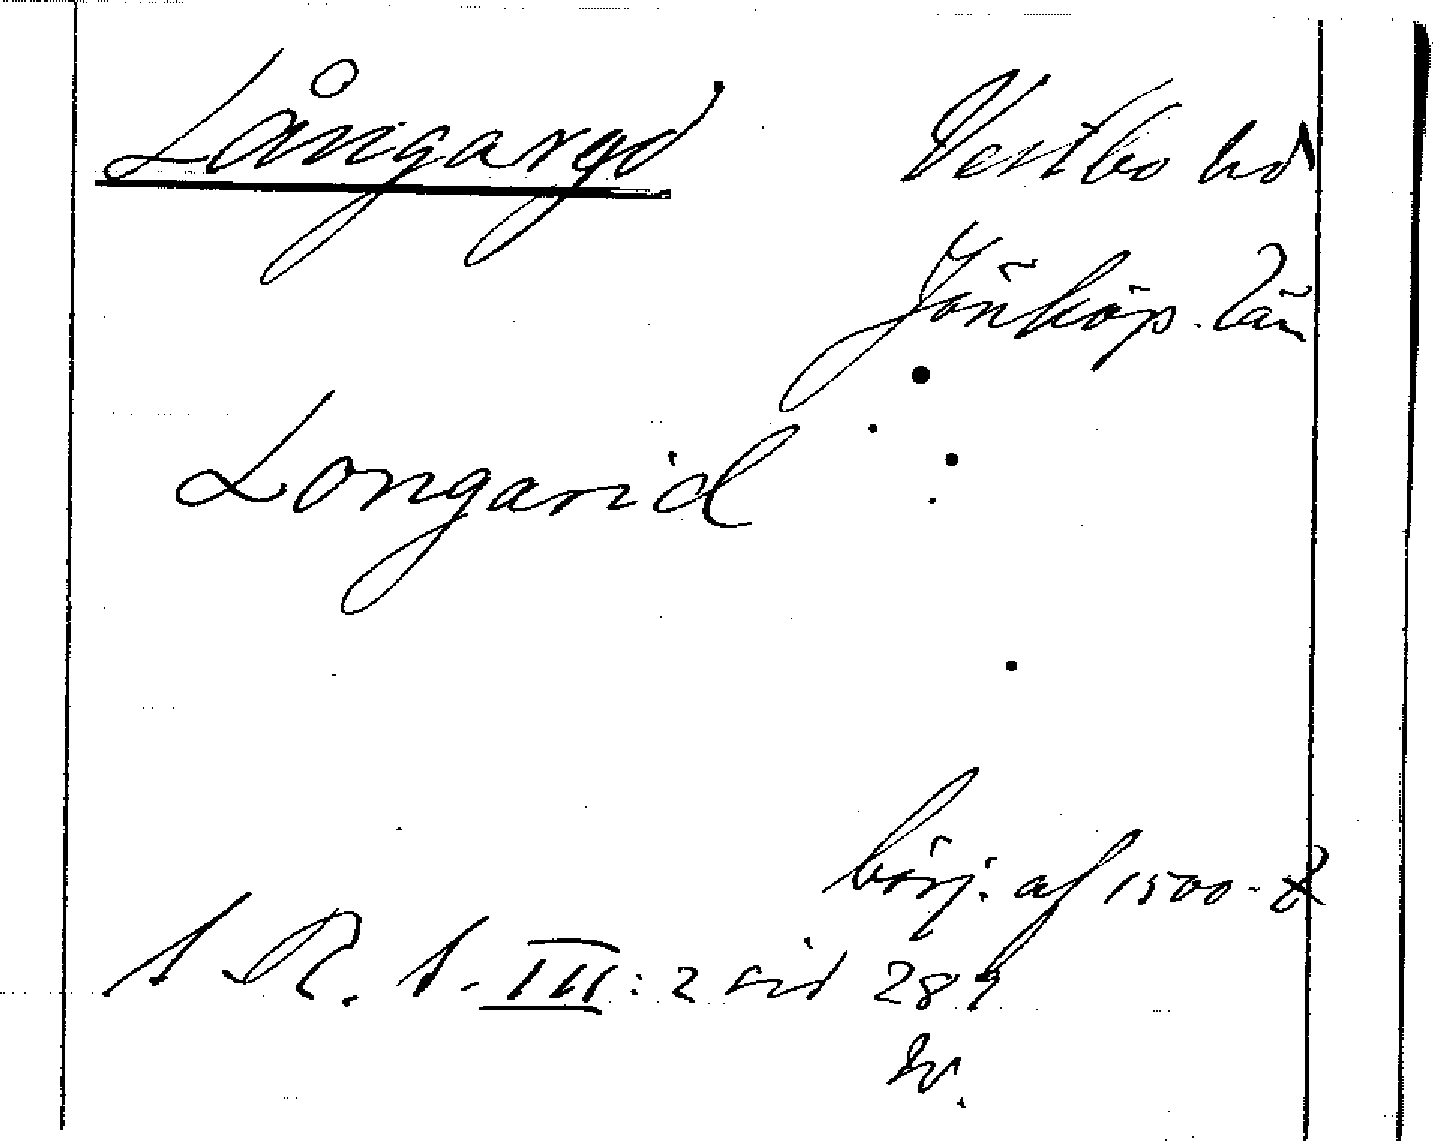 Långaryd Vestbo hd
Jönköp. län
Longarid
börj. af 1500-t
S. R. S. III: 2 sid 289